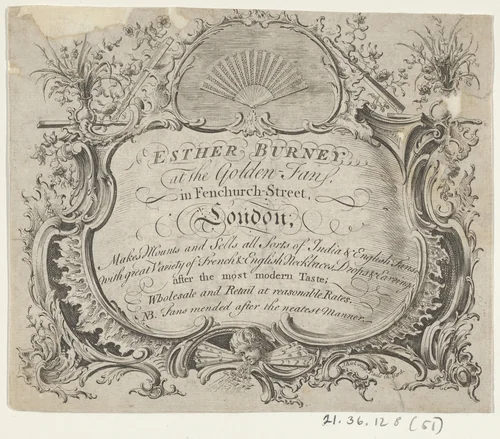 ESTHER BURNEY,
at the Golden Fan,
in Fenchurch-Street,
London;
Makes Mounts and Sells all Sorts of India & English Fans,
with great Variety of French & English Necklaces, Drops & Earrings,
after the most modern Taste;
Wholesale and Retail at reasonable Rates.
NB. Fans mended after the neatest Manner.
21.36.128 (51)